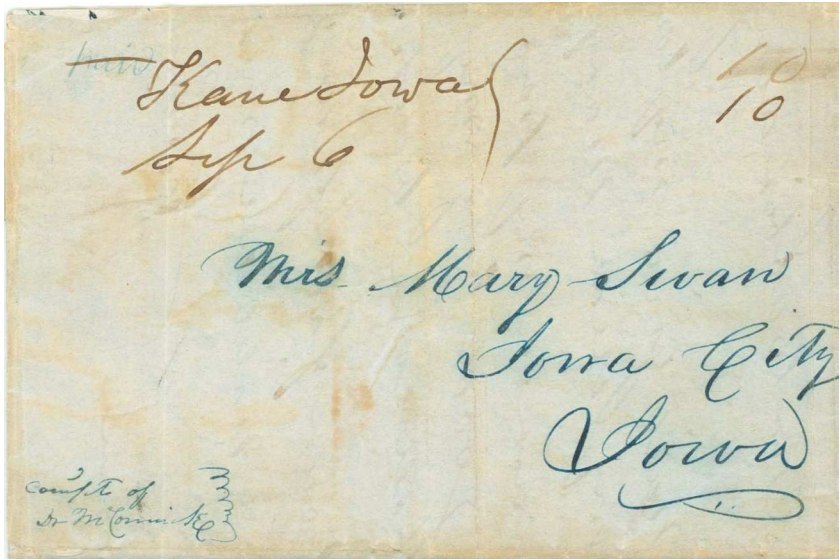 paid
Kane Iowa
Sep 6
10
10
Mrs. Mary Swan
Iowa City
Iowa
Compts of
Dr McCormick